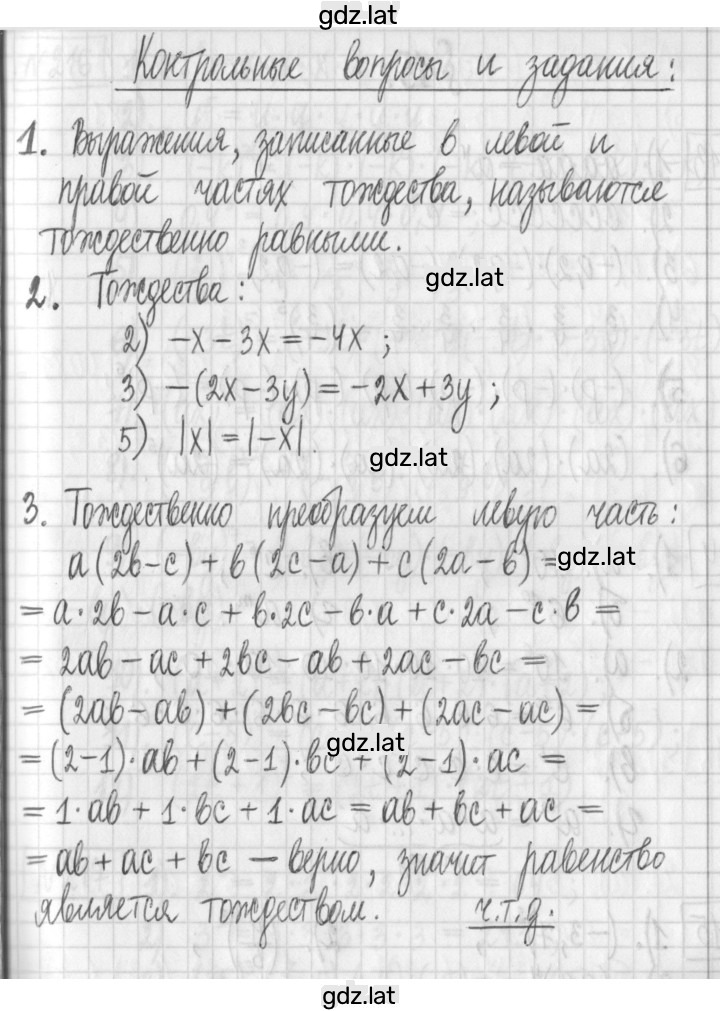 gdz.lat
Контрольные вопросы и задания:
1. Выражения, записанные в левой и
правой частях тождества, называются
тождественно равными.
gdz.lat
2. Тождества:
2) -x - 3x = -4x ;
3) -(2x - 3y) = -2x + 3y ;
5) |x| = |-x|.
gdz.lat
3. Тождественно преобразуем левую часть:
a(2b-c) + b(2c-a) + c(2a-b) =
gdz.lat
= a·2b - a·c + b·2c - b·a + c·2a - c·b =
= 2ab - ac + 2bc - ab + 2ac - bc =
= (2ab - ab) + (2bc - bc) + (2ac - ac) =
gdz.lat
= (2-1)·ab + (2-1)·bc + (2-1)·ac =
= 1·ab + 1·bc + 1·ac = ab + bc + ac =
= ab + ac + bc - верно, значит равенство
является тождеством. ч.т.д.
gdz.lat